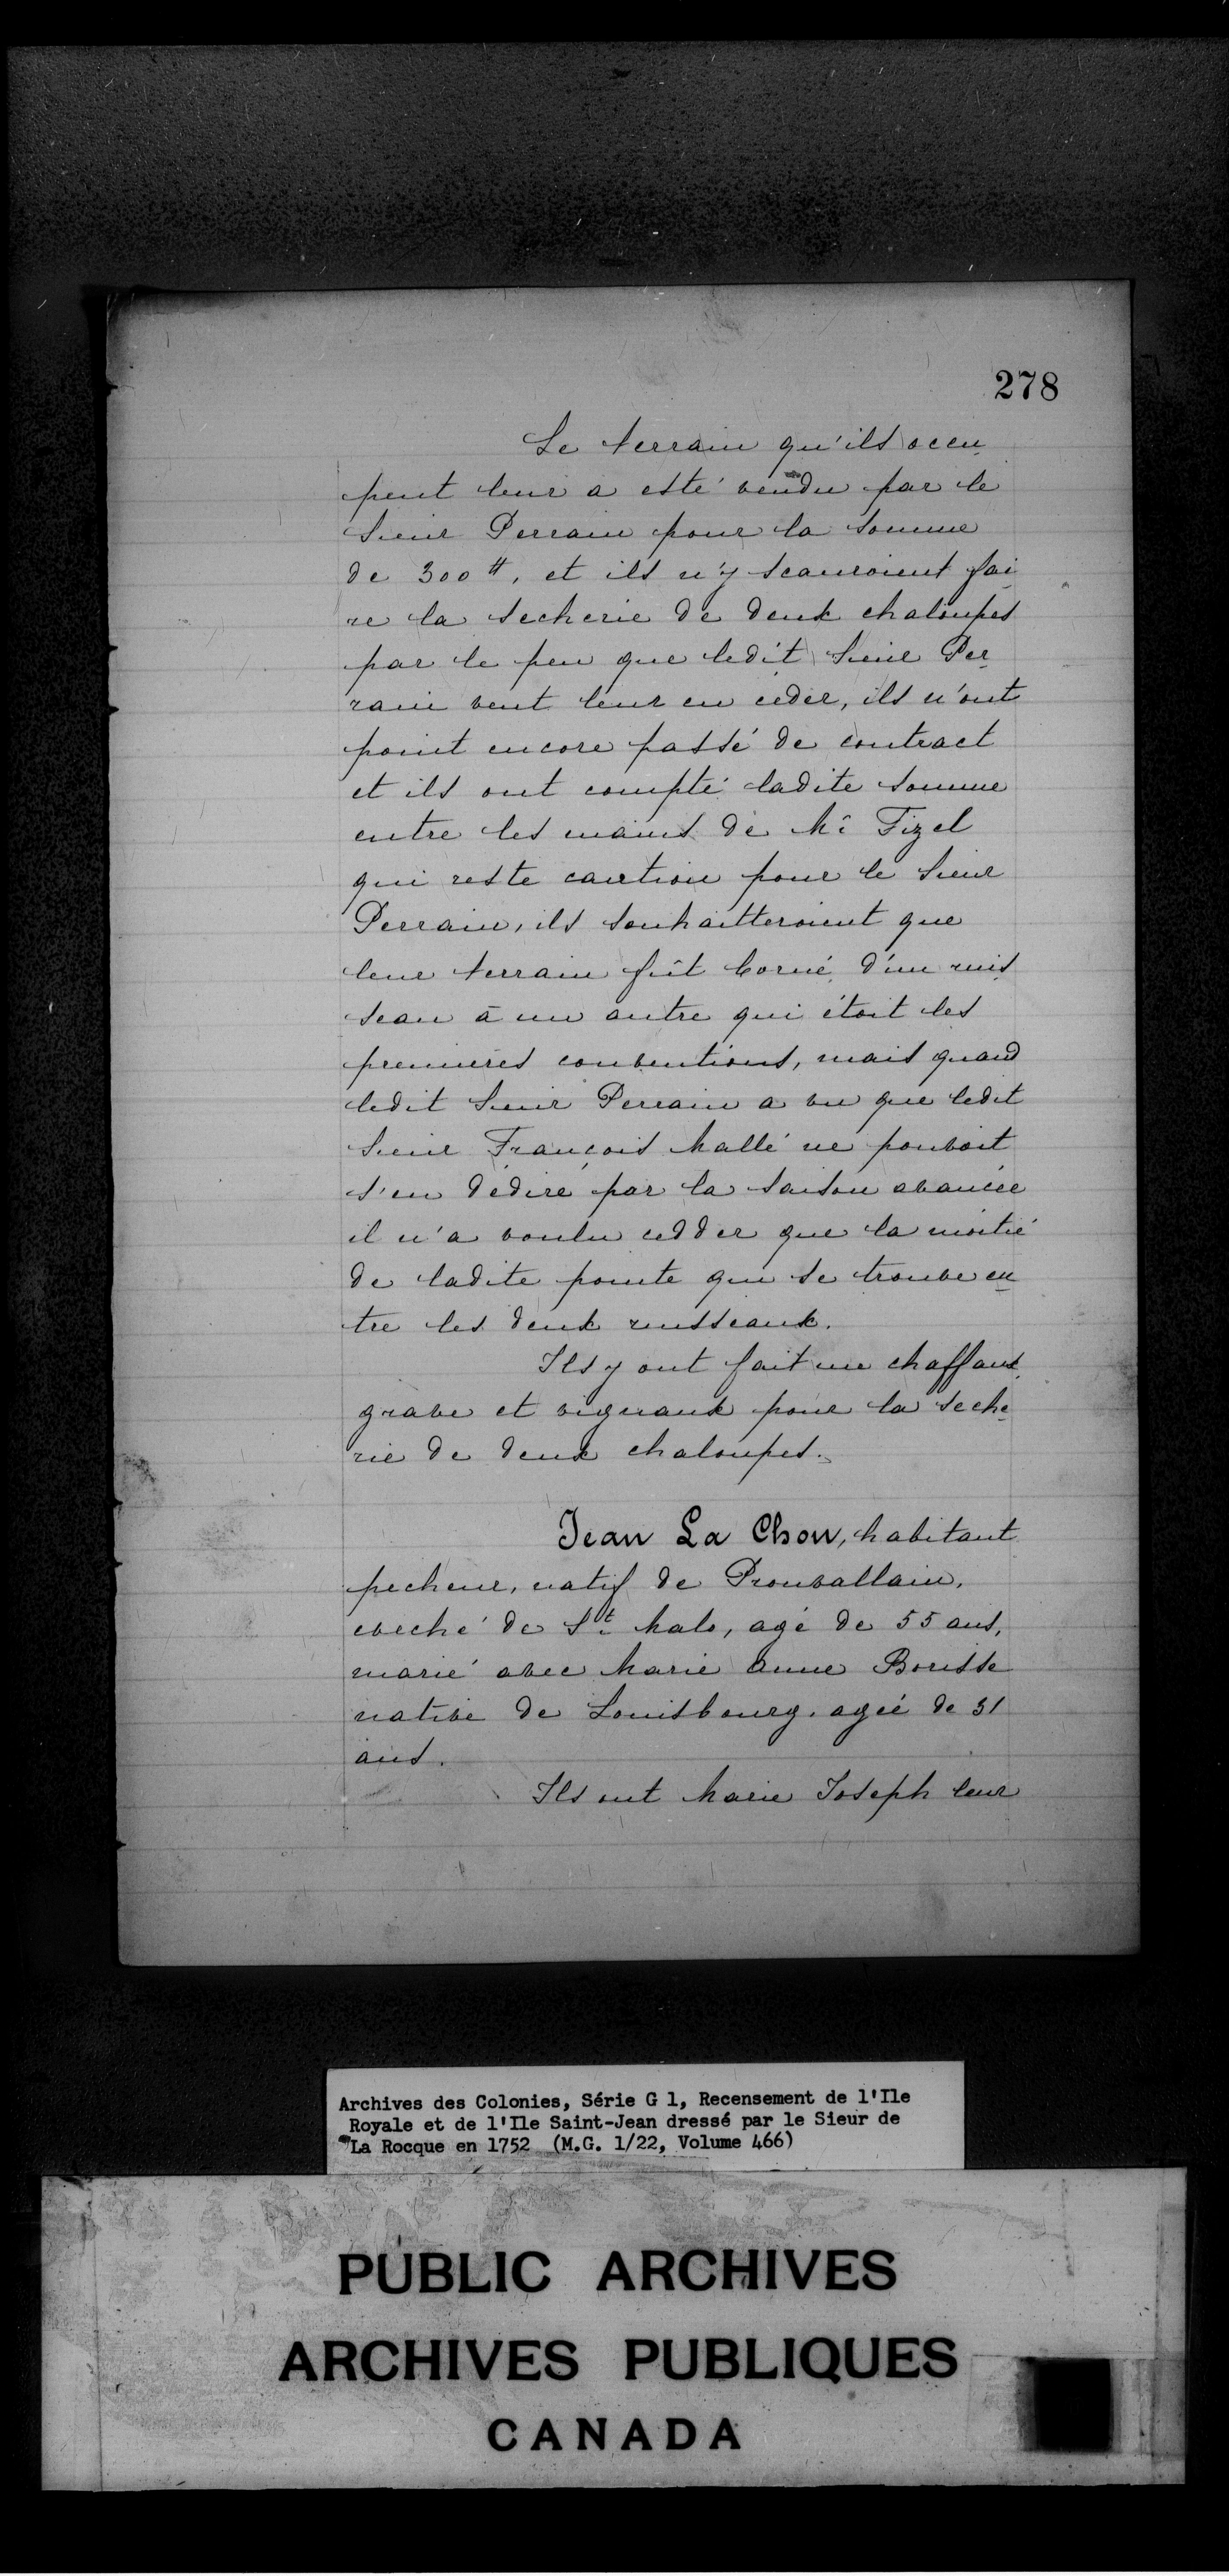 278
Le terrain qu'ils occu
pent leur a esté vendu par le
Sieur Perrain pour la somme
de 300 ₶, et ils n'y scauroient fai
re la secherie de deux chaloupes
par le peu que ledit Sieur Per
rain veut leur en céder, ils n'ont
point encore passé de contract
et ils ont compté ladite somme
entre les mains de Mr Fizel
qui reste caution pour le Sieur
Perrain, ils souhaitteroient que
leur terrain fût borné d'un ruis
seau à un autre qui étoit les
premières conventions, mais quand
ledit Sieur Perrain a vu que ledit
Sieur François Mallé ne pouvoit
s'en dédire par la saison avancée
il n'a voulu cedder que la moitié
de ladite pointe qui se trouve en
tre les deux ruisseaux.
Ils y ont fait un chaffaux
grave et vignaux pour la seche
rie de deux chaloupes.
Jean La Chou, habitant
pecheur, natif de Prouvallain,
eveché de St Malo, agé de 55 ans,
marié avec Marie Anne Borisse
native de Louisbourg, agée de 31
ans.
Ils ont Marie Joseph leur
Archives des Colonies, Série G 1, Recensement de l'Ile
Royale et de l'Ile Saint-Jean dressé par le Sieur de
La Rocque en 1752 (M.G. 1/22, Volume 466)
PUBLIC ARCHIVES
ARCHIVES PUBLIQUES
CANADA